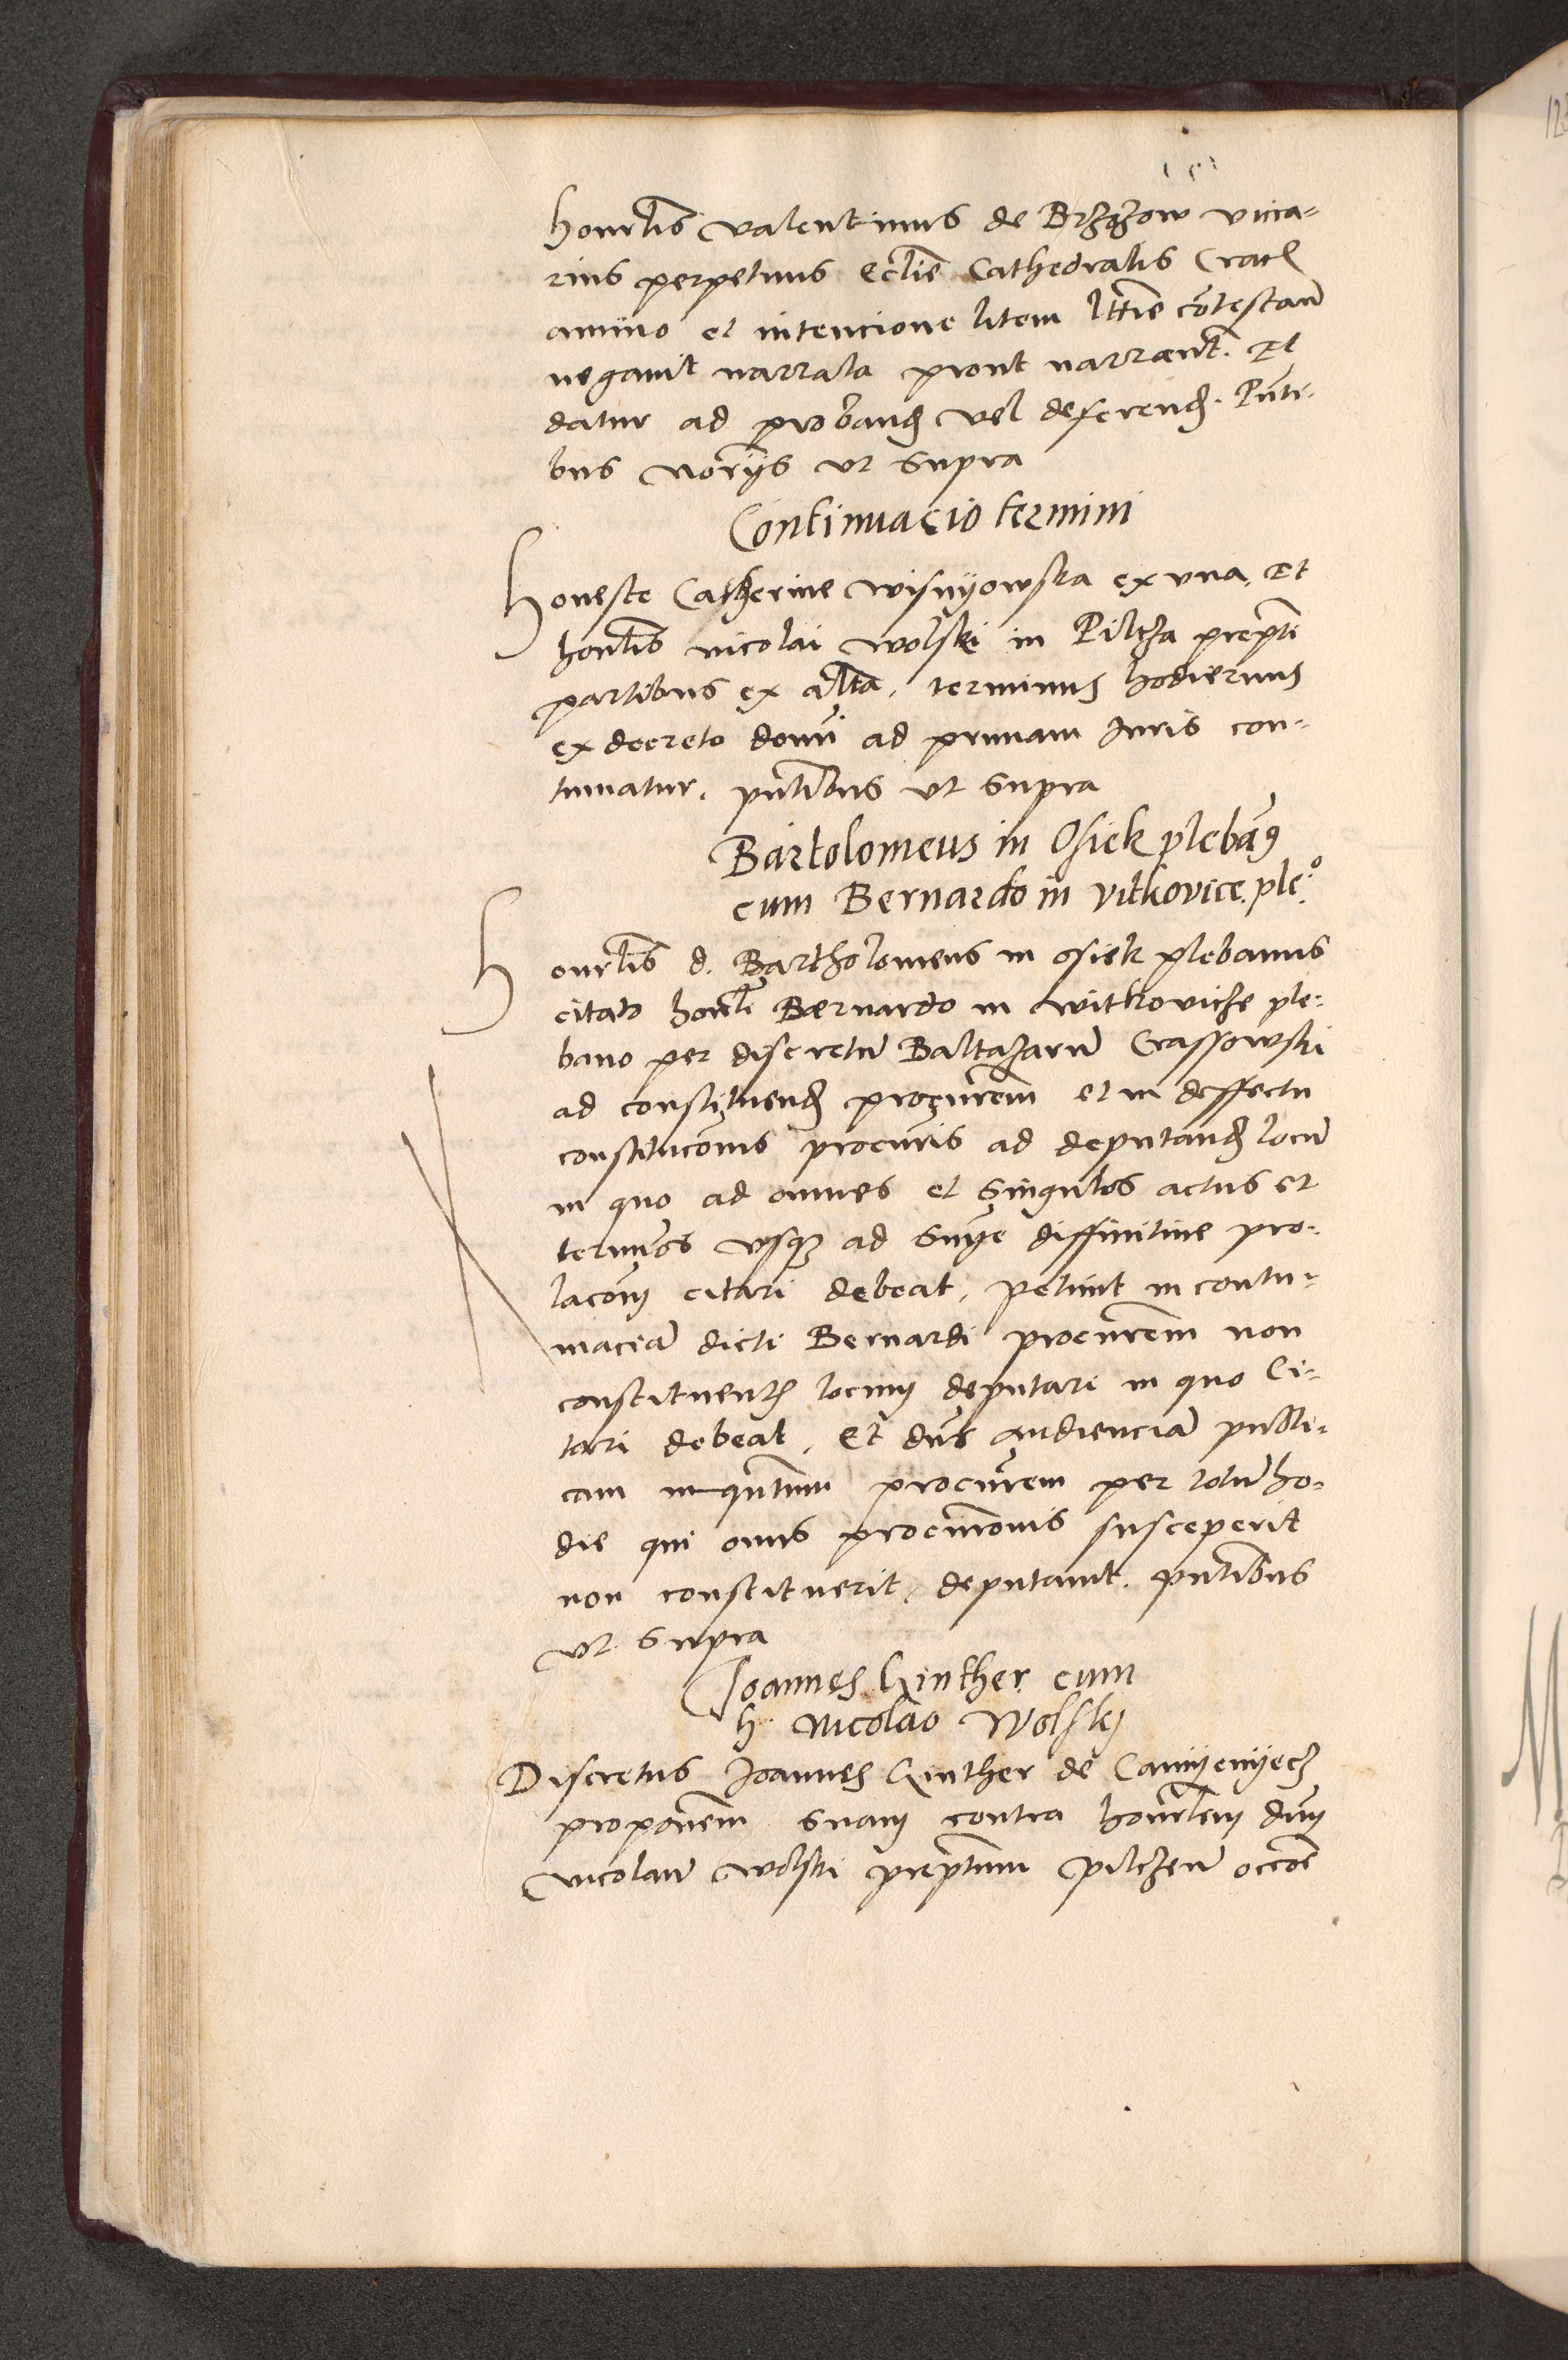 honrlis valentinus de Brzozow vicca-
rius perpetuus Ecclie Cathedralis Crac
animo et intencione litem lttie contestan
negavit narrata prout narrantr. Et
datur ad proband vel deferend. Pnti-
bus noriis ut supra
Continuacio termini
Honeste Catherine Wisnyowska ex una, Et
honrlis nicolai Wolski in Pilcza prepti
partibus ex altra, terminus hodiernus
ex decreto domi ad primam Iuris con-
tinuatur. pntibus ut supra
Bartolomeus in Osiek pleban9
cum Bernardo in vitkovice ple.o
Honrlis d. Bartholomeus in osiek plebanus
citato honrli Bernardo in Witkovicze ple-
bano per discretu Baltazaru Crassowski
ad constituend procurem et in deffectu
constitucois procuris ad deputand locu
in quo ad omnes et singulos actus et
terminos usq3 ad snye diffinitive pro-
lacom citari debeat, petiit in contu-
macia dicti Bernardi procurem non
constituent locum deputari in quo Ci-
tari debeat. Et dns audiencia publi-
cam inquntum procurem per totu ho-
die qui onus procuracois susceperit
non constituerit, deputavit. pntibus
ut supra
Joannes Ginther cum
h. Nicolao Wolski
Discretus Joannes Ginther de Camyenyecz
proponem suam contra honrlem dnm
Nicolau Wolski preptum pilczen occoe